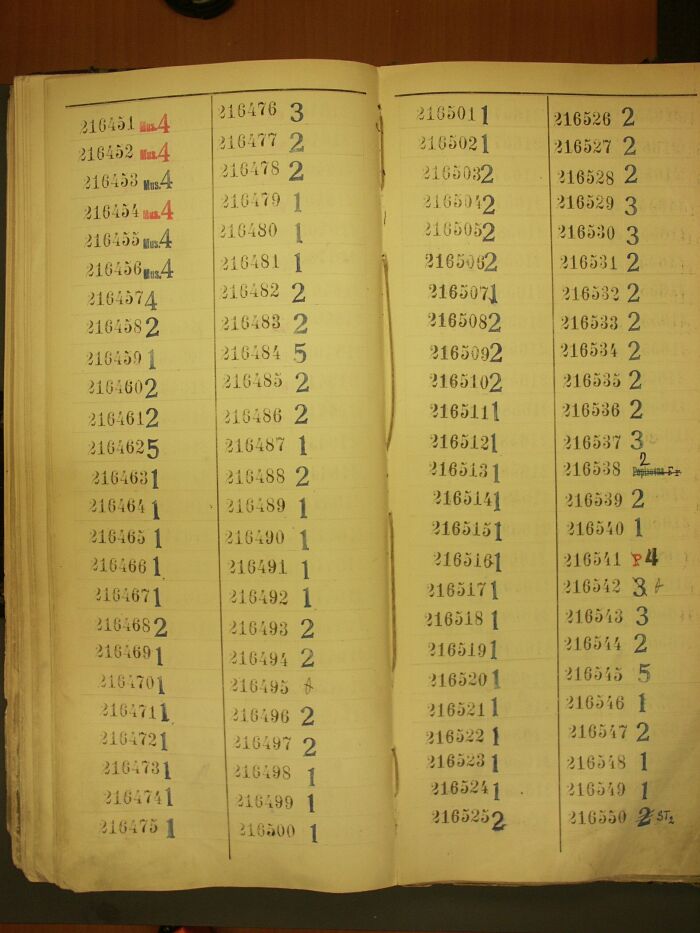 216451 Mus. 4
216452 Mus. 4
216453 Mus. 4
216454 Mus. 4
216455 Mus. 4
216456 Mus. 4
216457 4
216458 2
216459 1
216460 2
216461 2
216462 5
216463 1
216464 1
216465 1
216466 1
216467 1
216468 2
216469 1
216470 1
216471 1
216472 1
216473 1
216474 1
216475 1
216476 3
216477 2
216478 2
216479 1
216480 1
216481 1
216482 2
216483 2
216484 5
216485 2
216486 2
216487 1
216488 2
216489 1
216490 1
216491 1
216492 1
216493 2
216494 2
216495
216496 2
216497 2
216498 1
216499 1
216500 1
216501 1
216502 1
216503 2
216504 2
216505 2
216506 2
216507 1
216508 2
216509 2
216510 2
216511 1
216512 1
216513 1
216514 1
216515 1
216516 1
216517 1
216518 1
216519 1
216520 1
216521 1
216522 1
216523 1
216524 1
216525 2
216526 2
216527 2
216528 2
216529 3
216530 3
216531 2
216532 2
216533 2
216534 2
216535 2
216536 2
216537 3
216538 2
216539 2
216540 1
216541 P 4
216542 3
216543 3
216544 2
216545 5
216546 1
216547 2
216548 1
216549 1
216550 2 ST2